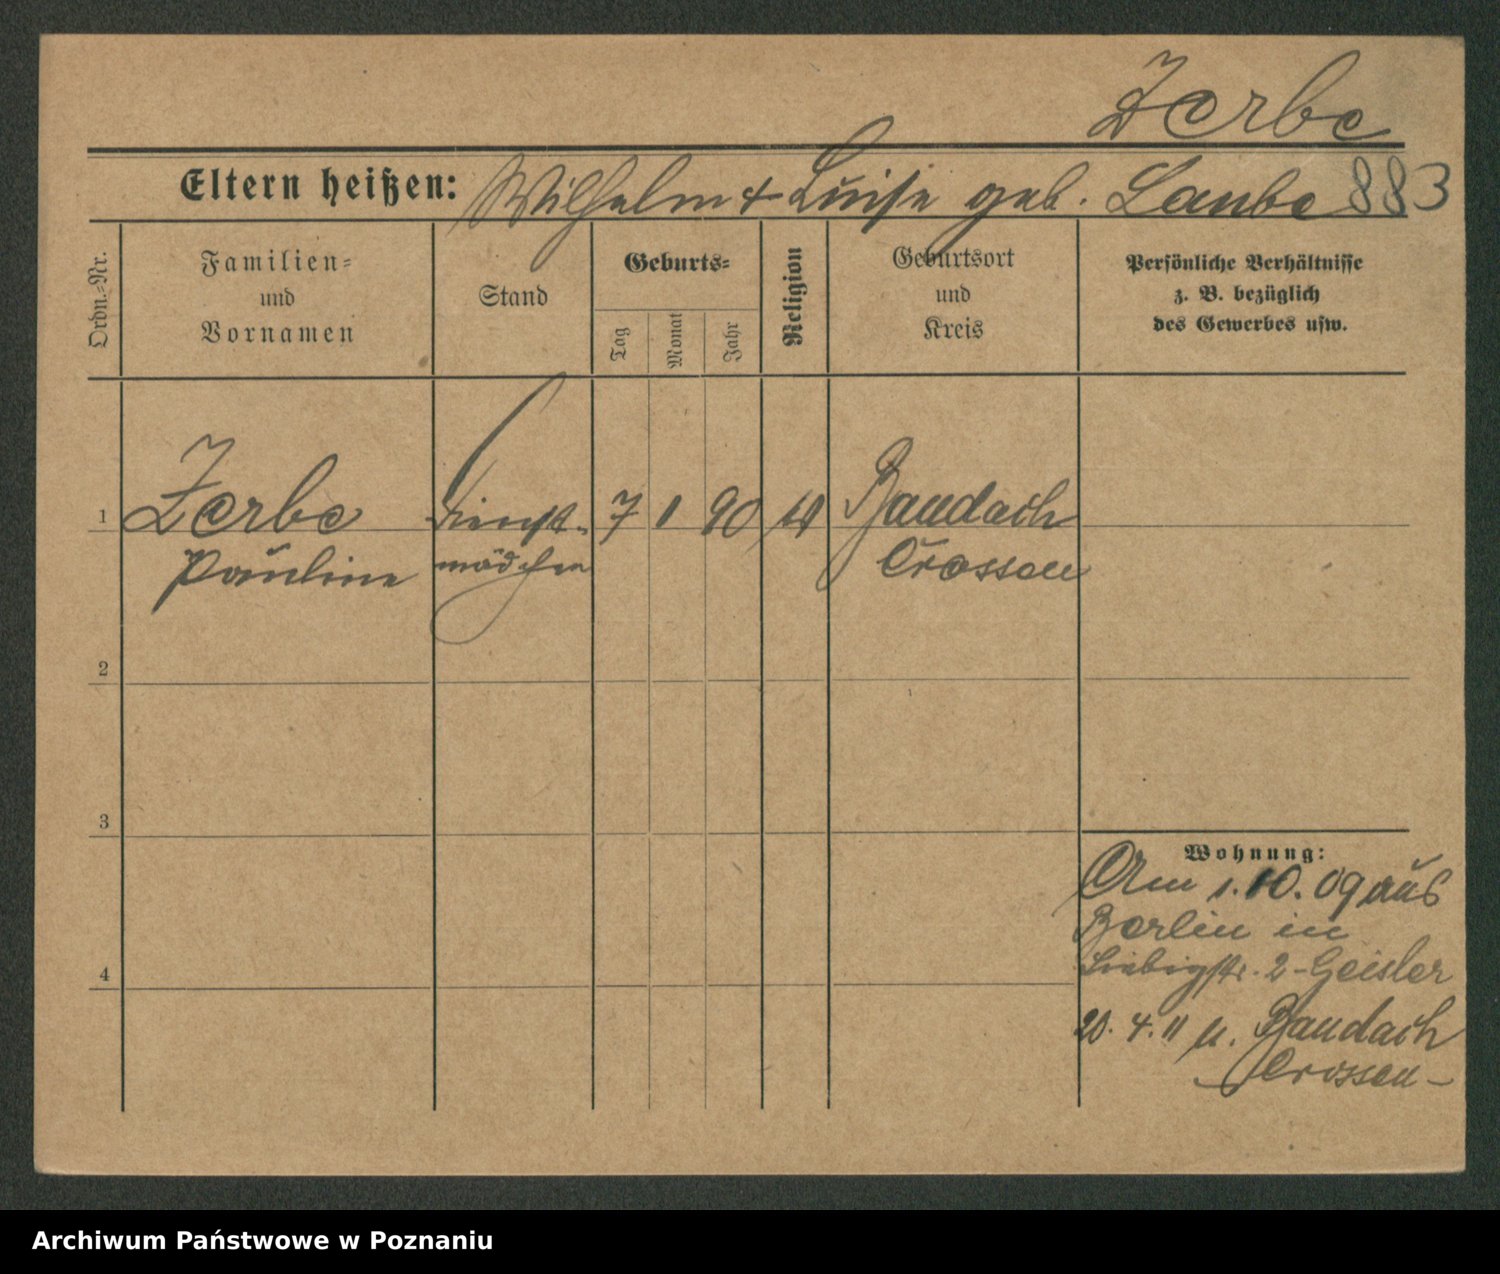 Zerbe
Eltern heißen: Wilhelm + Luise geb. Laube 883
Ordn.=Nr.
Familien=
und
Vornamen
Stand
Geburts=
Tag
Monat
Jahr
Religion
Geburtsort
und
Kreis
Persönliche Verhältnisse
z. B. bezüglich
des Gewerbes usw.
1 Zerbe Dienst- 7 1 90 Baudach
Pauline mädchen Crossen
2
3
4
Wohnung:
Am 1.10.09 aus
Berlin in
Liebigstr. 2-Geisler
20.4.11 n. Baudach
Crossen-
Archiwum Państwowe w Poznaniu